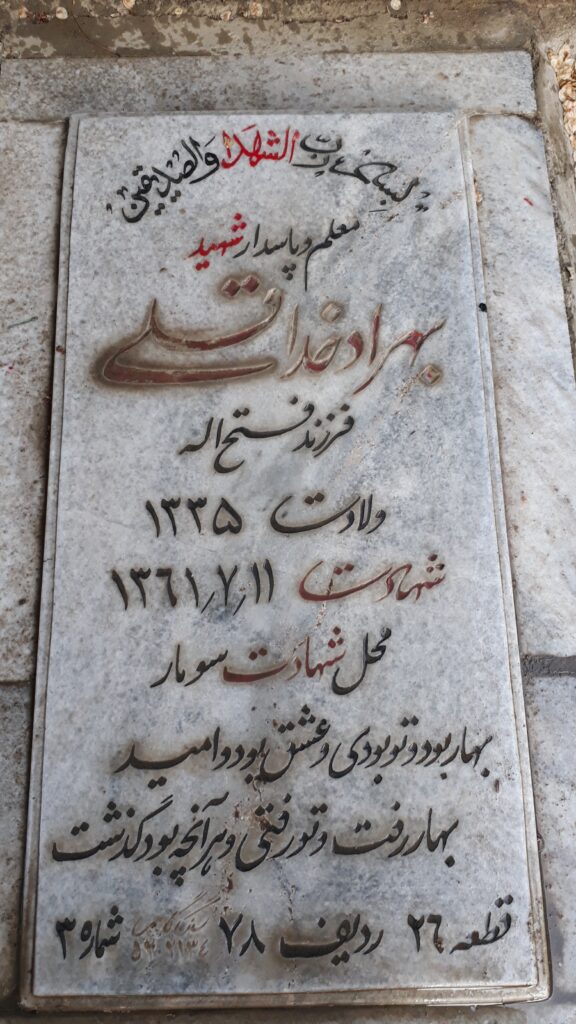 بسم رب الشهدا والصدیقین
معلم و پاسدار شهید
بهزاد خداقلی
فرزند فتح اله
ولادت ۱۳۳۵
شهادت ۱۳۶۱٫۷٫۱۱
محل شهادت سومار
بهار بود و تو بودی و عشق بود و امید
بهار رفت و تو رفتی و هر آنچه بود گذشت
قطعه ۲۶ ردیف ۷۸ شماره ۳